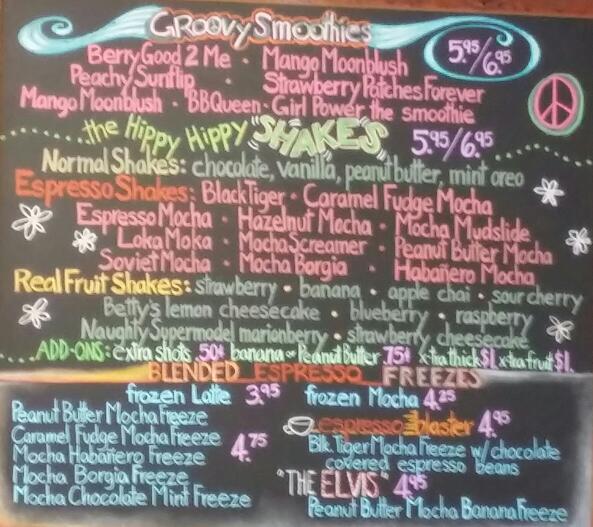 Groovy Smoothies
5.95/6.95
Berry Good 2 Me · Mango Moonblush
Peachy Sunflip · Strawberry Patches Forever
Mango Moonblush · BBQueen · Girl Power the smoothie
the Hippy Hippy "SHAKES" 5.95/6.95
Normal Shakes: chocolate, vanilla, peanut butter, mint oreo
Espresso Shakes: Black Tiger · Caramel Fudge Mocha
Espresso Mocha · Hazelnut Mocha · Mocha Mudslide
Loka Moka · Mocha Screamer · Peanut Butter Mocha
Soviet Mocha · Mocha Borgia · Habañero Mocha
Real Fruit Shakes: strawberry · banana · apple chai · sour cherry
Betty's lemon cheesecake · blueberry · raspberry
Naughty Supermodel marionberry · strawberry cheesecake
ADD-ONS: extra shots .50¢ banana or Peanut Butter .75¢ x-tra thick $1 x-tra fruit $1.
BLENDED ESPRESSO FREEZES
frozen Latte 3.95 frozen Mocha 4.25
Peanut Butter Mocha Freeze
Caramel Fudge Mocha Freeze
Mocha Habañero Freeze 4.75
Mocha Borgia Freeze
Mocha Chocolate Mint Freeze
espresso blaster 4.95
Blk. Tiger Mocha Freeze w/ chocolate
covered espresso beans
"THE ELVIS" 4.95
Peanut Butter Mocha Banana Freeze